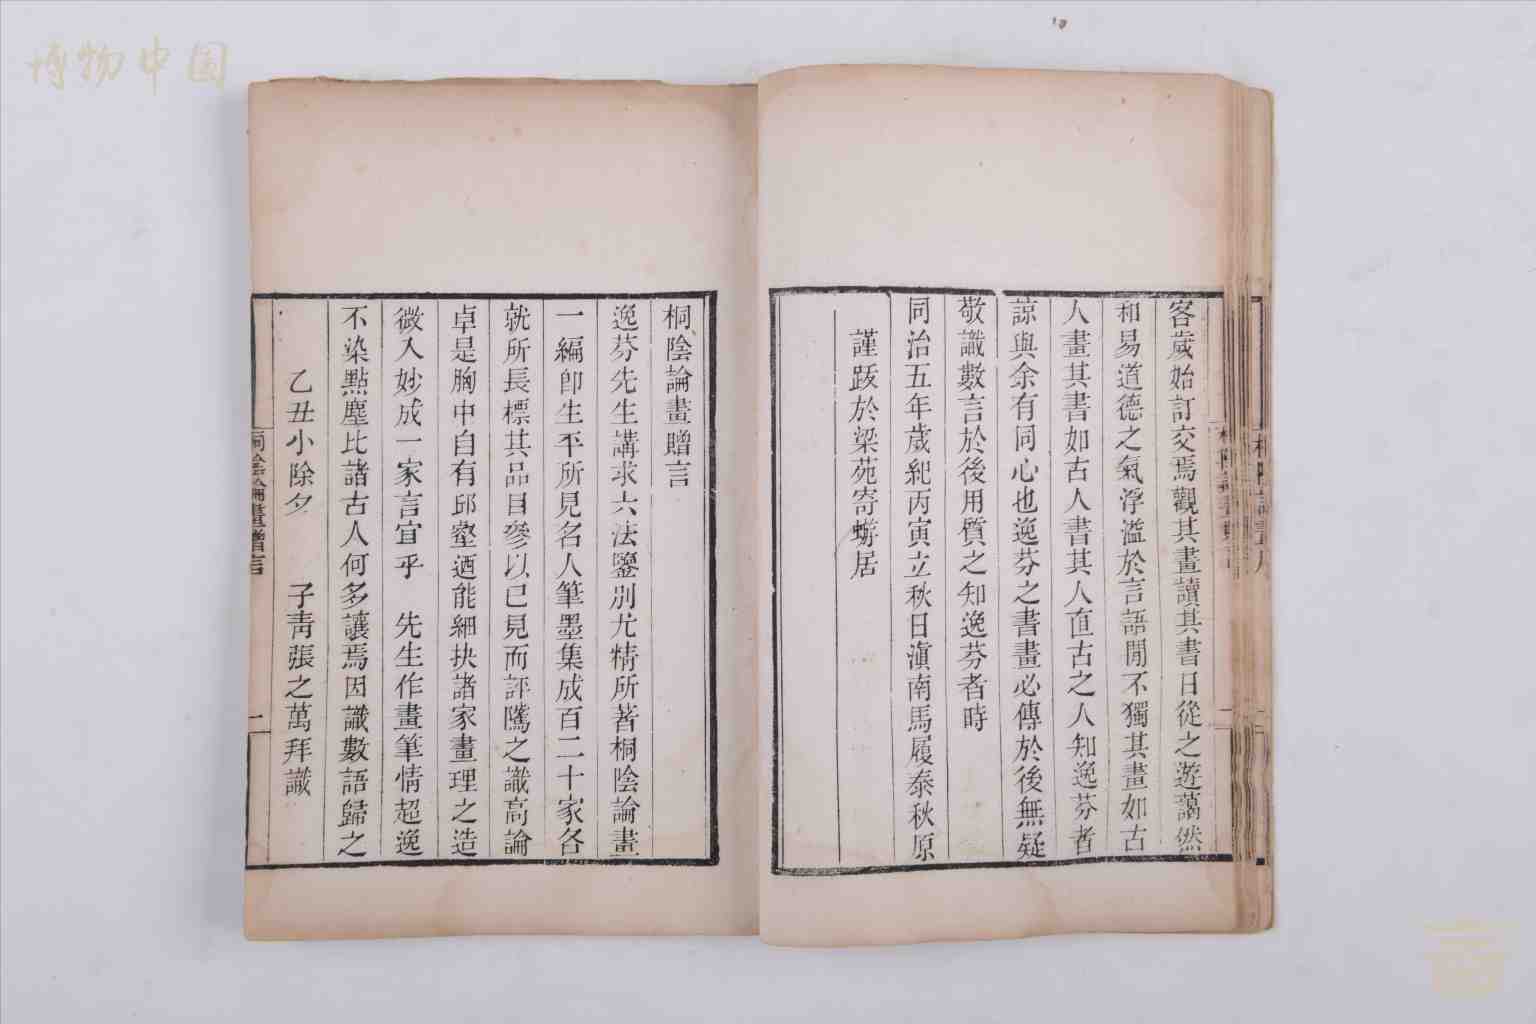 博物中国
客歲始訂交焉觀其畫讀其書日從之遊藹然
和易道德之氣浮溢於言語閒不獨其畫如古
人畫其書如古人書其人直古之人知逸芬者
諒與余有同心也逸芬之書畫必傳於後無疑
敬識數言於後用質之知逸芬者時
同治五年歲紀丙寅立秋日滇南馬履泰秋原
謹跋於梁苑寄蝣居
桐陰論畫贈言
逸芬先生講求六法鑒別尤精所著桐陰論畫
一編卽生平所見名人筆墨集成百二十家各
就所長標其品目參以己見而評騭之識高論
卓是胸中自有邱壑迺能細抉諸家畫理之造
微入妙成一家言宜乎　先生作畫筆情超逸
不染點塵比諸古人何多讓焉因識數語歸之
乙丑小除夕　子靑張之萬拜識
桐陰論畫贈言
二